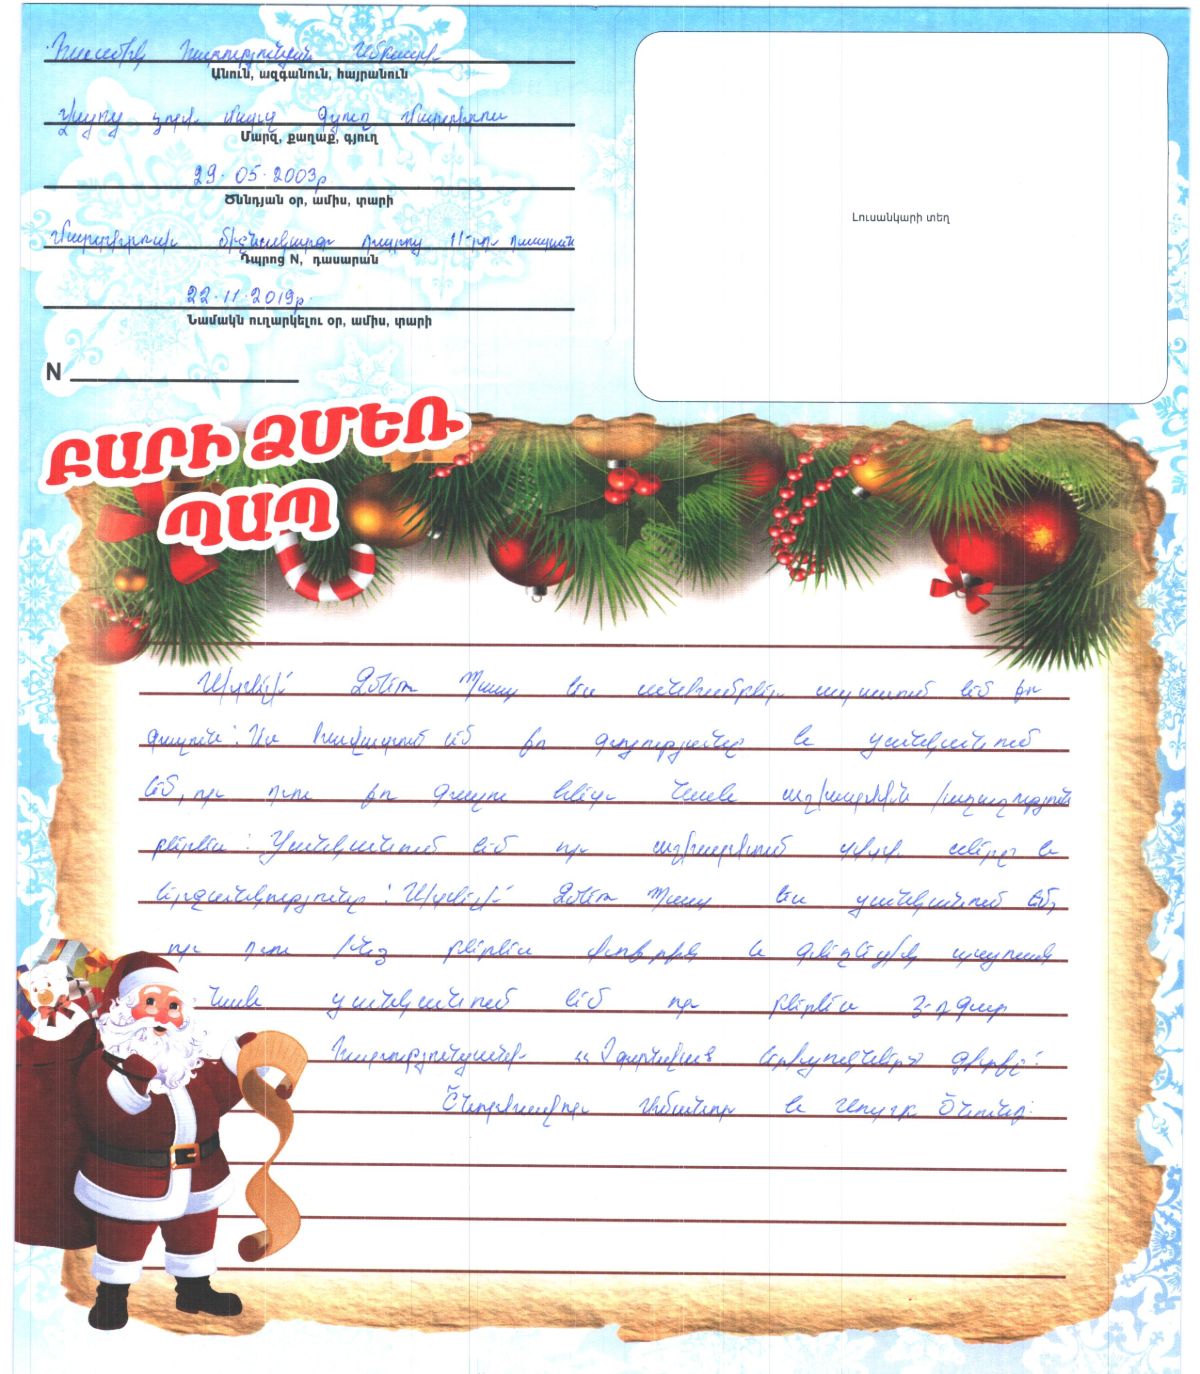 Հասմիկ Հարությունյան
Անուն, ազգանուն, հայրանուն
Վայոց ձոր մարզ գյուղ Մարտիրոս
Մարզ, քաղաք, գյուղ
29.05.2003թ.
Ծննդյան օր, ամիս, տարի
Մարտիրոսի միջնակարգ դպրոց 11-րդ դասարան
Դպրոց N, դասարան
22.11.2019թ.
Նամակն ուղարկելու օր, ամիս, տարի
N
Լուսանկարի տեղ
ԲԱՐԻ ՁՄԵՌ
ՊԱՊ
Սիրելի՛ Ձմեռ Պապ ես անհամբեր սպասում եմ քո
գալուն: Ես հավատում եմ քո գոյությանը և ցանկանում
եմ, որ դու քո գալու հետ նաև աշխարհին խաղաղություն
բերես: Ցանկանում եմ որ աշխարհում տիրի սերը և
երջանկությունը: Սիրելի՛ Ձմեռ Պապ ես ցանկանում եմ,
որ դու ինձ բերես փոքրիկ և գեղեցիկ պայուսակ
նաև ցանկանում եմ որ բերես Էդգար
Հարությունյանի երկպողները գիրքը:
Շնորհավոր Ամանոր և Սուրբ Ծնունդ: